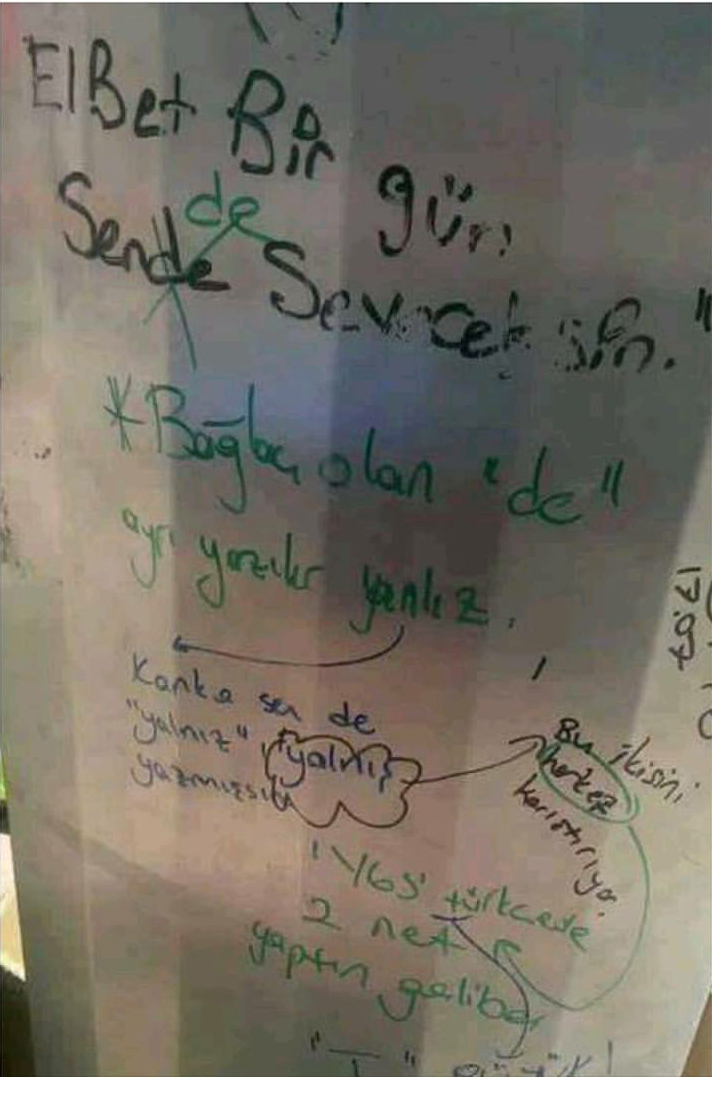 ElBet Bir gün
Sende Seveceksin."
de
*Bağlaç olan "de"
ayrı yazılır yanlız.
Kanka sen de
"yalnız" ı yalnış
yazmışsın
Bu ikisini
herkeş
karıştırıyo.
YGS türkcede
2 net
yaptın galiba
"T" büyük!